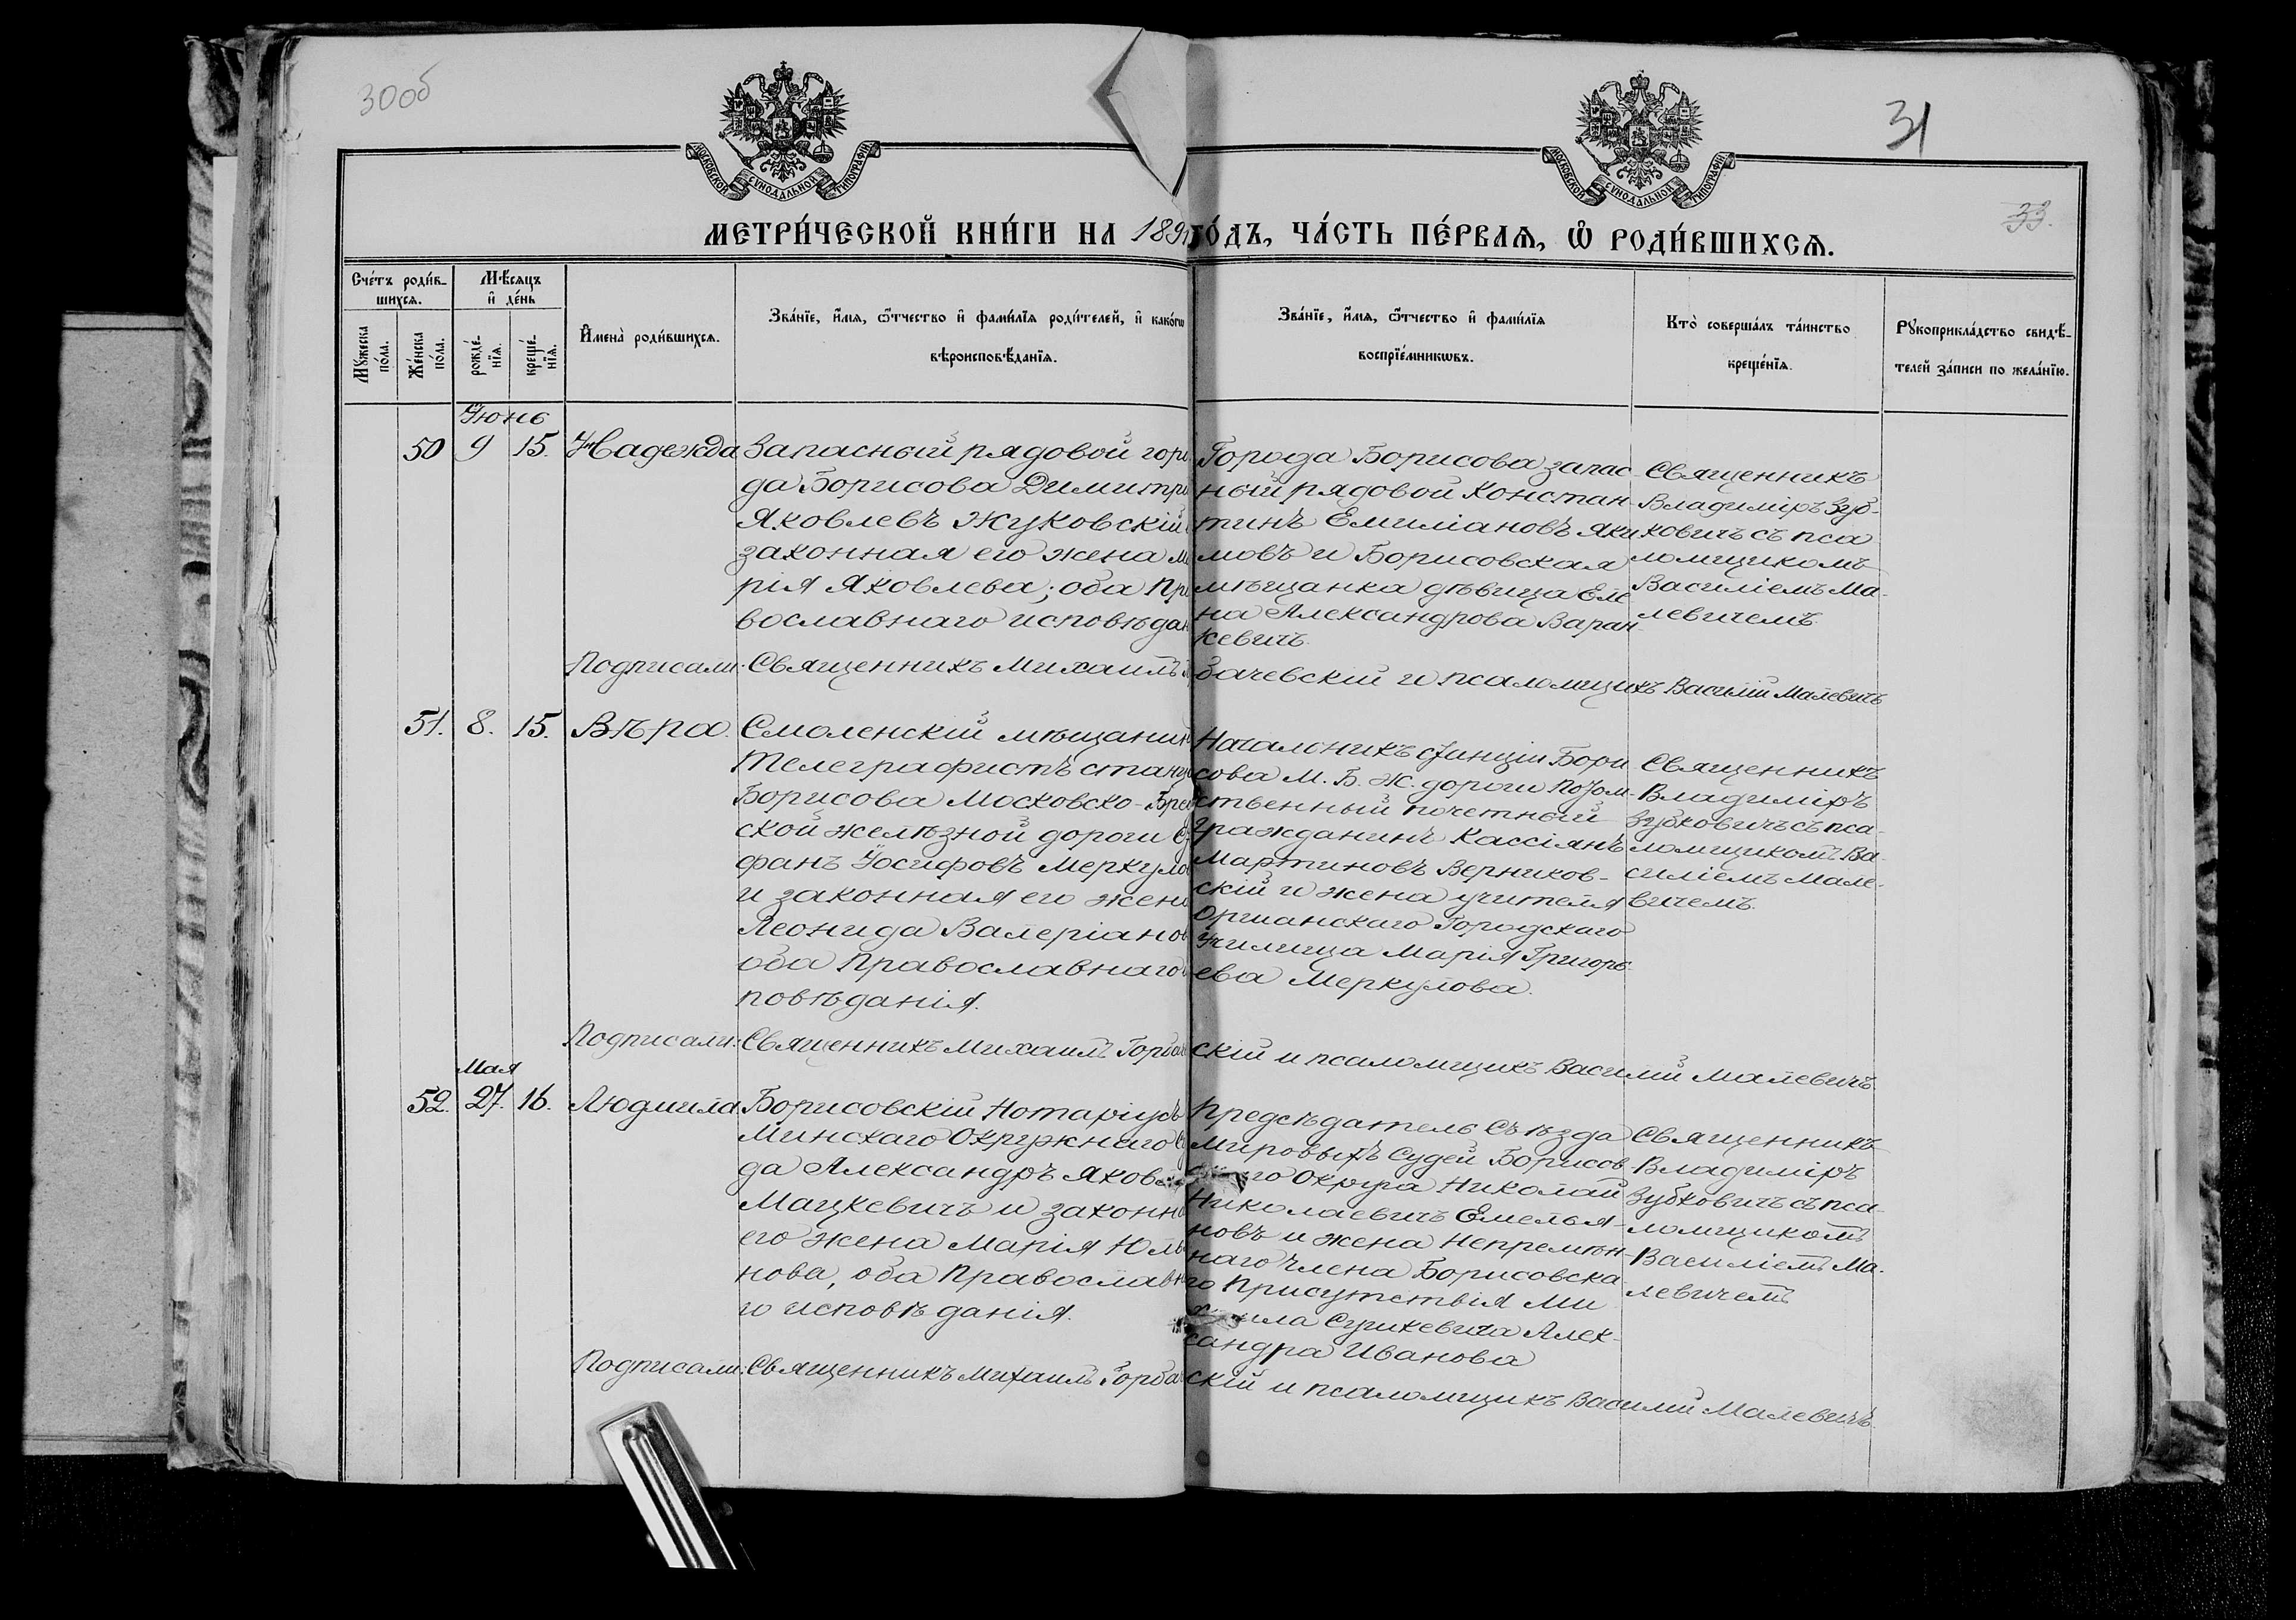 30об
31
33.
МОСКОВСКОЙ СУНОДАЛЬНОЙ ТИПОГРАФІИ
МОСКОВСКОЙ СУНОДАЛЬНОЙ ТИПОГРАФІИ
МЕТРИ́ЧЕСКОЙ КНИ́ГИ НА 189 ГО́ДЪ, ЧА́СТЬ ПЕ́РВАѦ, Ѿ РОДИ́ВШИХСѦ.
Сче́тъ роди́в-
шихсѧ.
Мꙋжеска по́ла.
Же́нска по́ла.
Мѣ́сѧцъ
и҆ де́нь
рожде́-
нїѧ.
креще́-
нїѧ.
И҆мена̀ роди́вшихсѧ.
Зва́нїе, и҆́мѧ, ѻ҆́тчество и҆ фами́лїѧ роди́телей, и҆ како́гѡ
вѣроисповѣ́данїѧ.
Зва́нїе, и҆́мѧ, ѻ҆́тчество и҆ фами́лїѧ
воспрїе́мникѡвъ.
Кто̀ соверша́лъ та́инство
креще́нїѧ.
Рꙋкоприкла́дство свидѣ́-
телей за́писи по жела́нїю.
Іюнь
50 9 15. Надежда
Запасный рядовой горо
да Борисова Димитрі
Яковлевъ Жуковскій
законная его жена М
рія Яковлева; оба Пр
вославнаго исповѣдан
Города Борисова запас-
ный рядовой Констан-
тинъ Емиліановъ Яки
мовъ и Борисовская
мѣщанка дѣвица Еле
на Александрова Варан-
кевичъ.
Священникъ
Владиміръ Зуб-
ковичъ съ пса
ломщикомъ
Василіемъ Ма-
левичемъ.
Подписали: Священникъ Михаилъ бачевскій и псаломщикъ Василій Малевичъ
51. 8. 15. Вѣра.
Смоленскій мѣщанин
Телеграфистъ станц
Борисова Московско-Брес
ской желѣзной дороги
фанъ Іосифовъ Меркуло
и законная его жена
Леонида Валеріанов
оба Православнаго
повѣданія.
Начальникъ станціи Бори
сова М. Б. ж. дороги Потом-
ственный почетный
Гражданинъ Кассіянъ
Мартиновъ Верников-
скій и жена учителя
Оршанскаго Городскаго
Училища Марія Григорь-
ева Меркулова.
Священникъ
Владиміръ
Зубковичъ съ пса-
ломщикомъ Ва-
силіемъ Мале-
вичемъ.
Подписали: Священникъ Михаилъ Горбач скій и псаломщикъ Василій Малевичъ.
Мая
52. 27. 16. Людмила
Борисовскій Нотаріусъ
Минскаго Окружнаго С
да Александръ Яков
Мацкевичъ и законн
его жена Марія Юль
нова, оба Православн
го исповѣданія.
Предсѣдатель Съѣзда
Мировыхъ Судей Борисов-
го Округа Николай
Николаевичъ Емелья-
новъ и жена Непремѣн-
наго Члена Борисовска
го Присутствія Ми
хаила Сушкевича Алек-
сандра Иванова
Священникъ
Владиміръ
Зубковичъ съ пса-
ломщикомъ
Василіемъ Ма-
левичемъ
Подписали: Священникъ Михаилъ Горбач скій и псаломщикъ Василій Малевичъ.